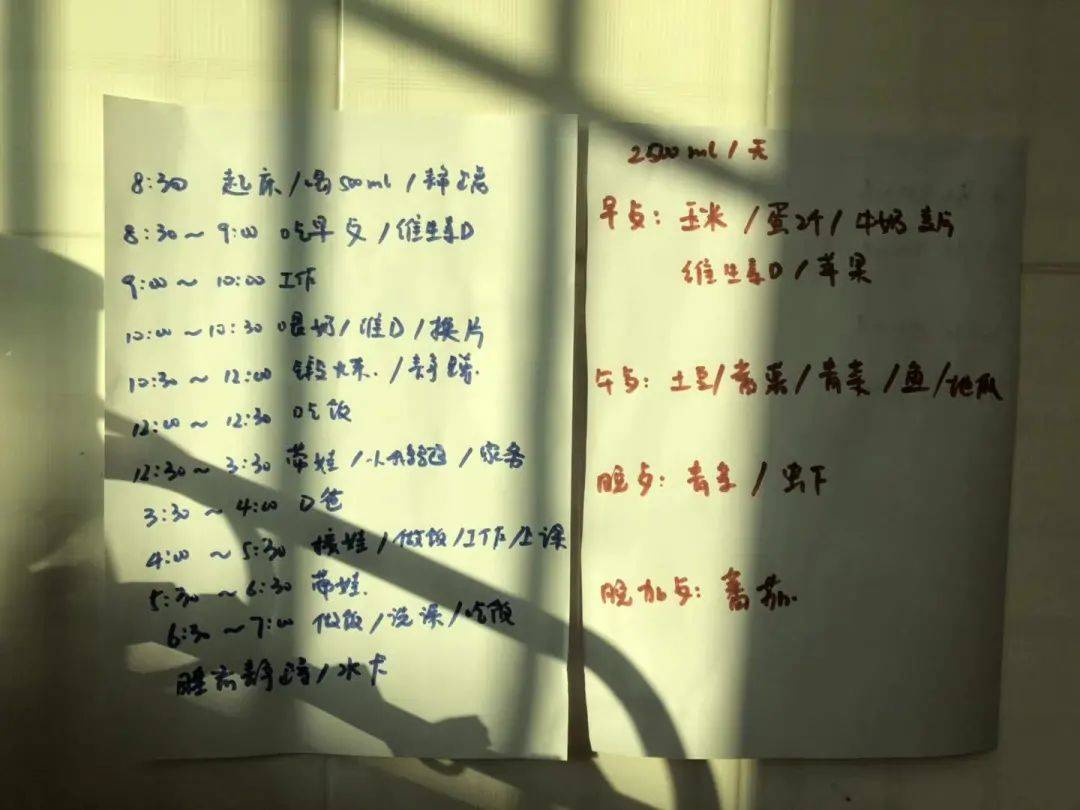 8:30 起床/喝500ml/
8:30~9:00 吃早点/维生素D
9:00~10:00 工作
10:00~10:30 喂奶/维D/换片
10:30~12:00 锻炼./
12:00~12:30 吃饭
12:30~3:30 带娃/家务
3:30~4:00
4:00~5:30 接娃/做饭/工作/上课
5:30~6:30 带娃.
6:30~7:00 做饭/吃饭
睡前/水
2500ml/天
早点: 玉米/蛋2个/牛奶麦片
维生素D/苹果
午点: 土豆/青菜/鱼/地瓜
晚点: 青菜/虫下
晚加点: 蕃茄.